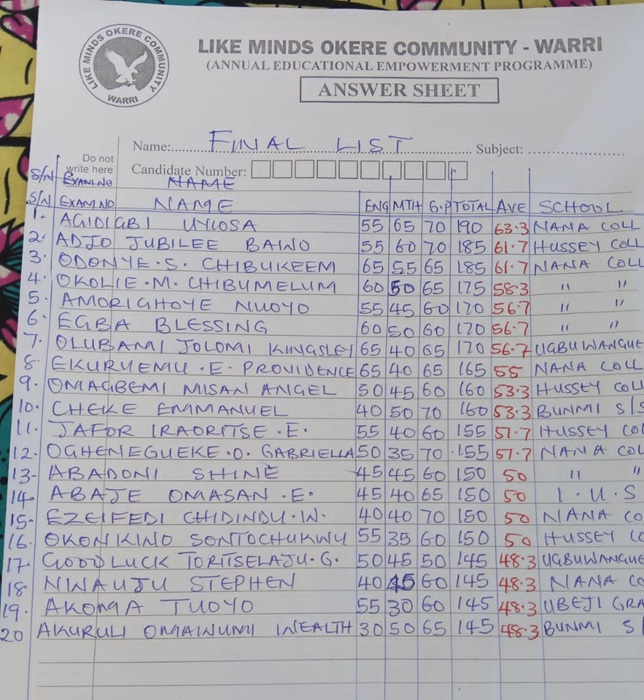 LIKE MINDS OKERE COMMUNITY
WARRI
LIKE MINDS OKERE COMMUNITY - WARRI
(ANNUAL EDUCATIONAL EMPOWERMENT PROGRAMME)
ANSWER SHEET
Name: FINAL LIST Subject:
Do not write here
Candidate Number:
S/N EXAM NO NAME
S/N EXAM NO. NAME ENG MTH G.P TOTAL AVE SCHOOL
1. AGIDIGBI UYLOSA 55 65 70 190 63.3 NANA COLL
2. ADJO JUBILEE BAINO 55 60 70 185 61.7 HUSSEY COLL
3. ODONYE.S. CHIBUKEEM 65 55 65 185 61.7 NANA COLL
4. OKOLIE.M. CHIBUMELUM 60 50 65 175 58.3 " "
5. AMORIGHOYE NUOYO 55 45 60 170 56.7 " "
6. EGBA BLESSING 60 50 60 170 56.7 " "
7. OLUBAMI JOLOMI KINGSLEY 65 40 65 170 56.7 UGBUWANGUE
8. EKURUEMU.E. PROVIDENCE 65 40 65 165 55 NANA COLL
9. OMAGBEMI MISAN ANGEL 50 45 60 160 53.3 HUSSEY COLL
10. CHEKE EMMANUEL 40 50 70 160 53.3 BUNMI S/S
11. JAFOR IRAORITSE.E. 55 40 60 155 51.7 HUSSEY COL
12. OGHENEGUEKE.O. GABRIELLA 50 35 70 155 51.7 NANA COL
13- ABADONI SHINE 45 45 60 150 50 " "
14. ABAJE OMASAN.E. 45 40 65 150 50 I.U.S
15- EZEIFEDI CHIDINDU.W. 40 40 70 150 50 NANA CO
16. OKONKINO SONTOCHUKWU 55 35 60 150 50 HUSSEY CO
17- GOODLUCK TORITSELAJU.G. 50 45 50 145 48.3 UGBUWANGUE
18- NWAUJU STEPHEN 40 45 60 145 48.3 NANA CO
19. AKOMA TUOYO 55 30 60 145 48.3 UBEJI GRA
20 AKURULI OMAWUMI WEALTH 30 50 65 145 48.3 BUNMI S/